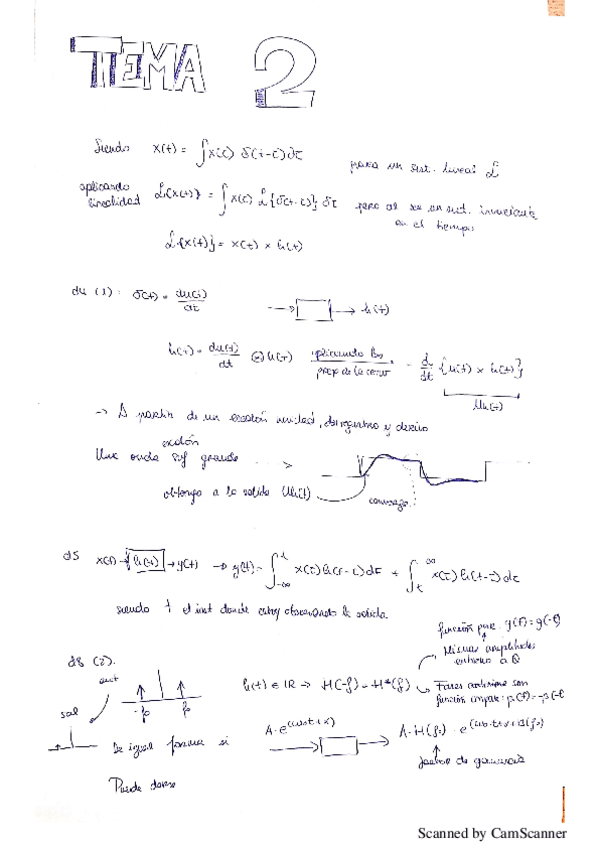 TEMA 2
Siendo x(t) = ∫x(τ) δ(t-τ)dτ para un sist. lineal ℒ
aplicando linealidad ℒ{x(t)} = ∫x(τ) ℒ{δ(t-τ)} dτ pero al ser un sist. invariante en el tiempo
ℒ{x(t)} = x(t) × h(t)
d4 (1): δ(t) = du(t)/dt → h(t)
h(t) = du(t)/dt h(t) aplicando prop de la conv = d/dt {u(t) × h(t)}
Uh(t)
→ A partir de un escalón unidad, y derivo
escalón
Una onda suf grande
obtengo a la salida Uh(t)
d5 x(t) → h(t) → y(t) → y(t) = ∫-∞^t x(τ)h(t-τ)dτ + ∫t^∞ x(τ)h(t-τ)dτ
siendo t el inst donde estoy observando la salida.
función par:
Mismas amplitudes
entorno a 0
d8 (2).
h(t) ∈ ℝ → H(-f) = H*(f) → Fases
función impar:
-f₀ f₀
sal
De igual forma si
Puede darse
Scanned by CamScanner